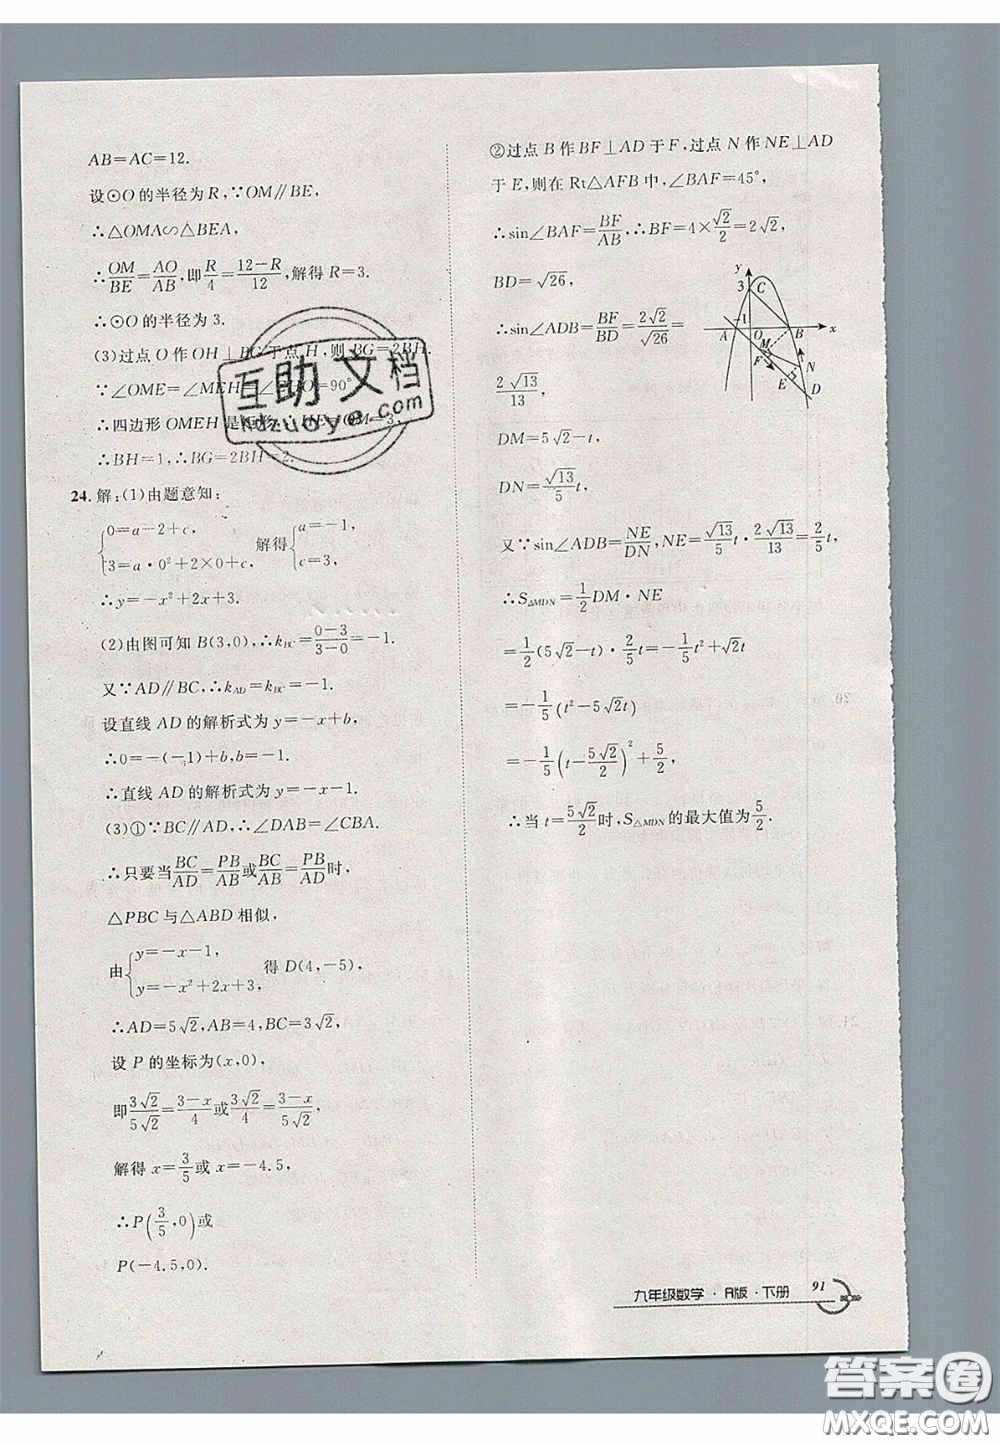 AB=AC=12.
设⊙O的半径为R,∵OM∥BE,
∴△OMA∽△BEA,
∴OM/BE=AO/AB,即R/4=(12-R)/12,解得R=3.
∴⊙O的半径为3.
(3)过点O作OH⊥BG于点H,则BG=2BH.
∵∠OME=∠MEH=∠EHO=90°
∴四边形OMEH是矩形,∴HE=OM=3,
∴BH=1,∴BG=2BH=2.
24.解:(1)由题意知:
{0=a-2+c, 3=a·0²+2×0+c, 解得{a=-1, c=3,
∴y=-x²+2x+3.
(2)由图可知B(3,0),∴k_BC=(0-3)/(3-0)=-1.
又∵AD∥BC,∴k_AD=k_BC=-1.
设直线AD的解析式为y=-x+b,
∴0=-(-1)+b,b=-1.
∴直线AD的解析式为y=-x-1.
(3)①∵BC∥AD,∴∠DAB=∠CBA.
∴只要当BC/AD=PB/AB或BC/AB=PB/AD时,
△PBC与△ABD相似,
由{y=-x-1, y=-x²+2x+3, 得D(4,-5),
∴AD=5√2,AB=4,BC=3√2,
设P的坐标为(x,0),
即3√2/5√2=(3-x)/4或3√2/4=(3-x)/5√2,
解得x=3/5或x=-4.5,
∴P(3/5,0)或
P(-4.5,0).
②过点B作BF⊥AD于F,过点N作NE⊥AD
于E,则在Rt△AFB中,∠BAF=45°,
∴sin∠BAF=BF/AB,∴BF=4×√2/2=2√2,
BD=√26,
∴sin∠ADB=BF/BD=2√2/√26=
2√13/13,
DM=5√2-t,
DN=√13/5 t,
又∵sin∠ADB=NE/DN,NE=√13/5 t·2√13/13=2/5 t,
∴S△MDN=1/2 DM·NE
=1/2(5√2-t)·2/5 t=-1/5 t²+√2t
=-1/5(t²-5√2t)
=-1/5(t-5√2/2)²+5/2,
∴当t=5√2/2时,S△MDN的最大值为5/2.
y
3 C
-1
A O B x
M
F E N
D
互助文档
kdzuoye.com
九年级数学·R版·下册 91
答案圈
MXQE.COM